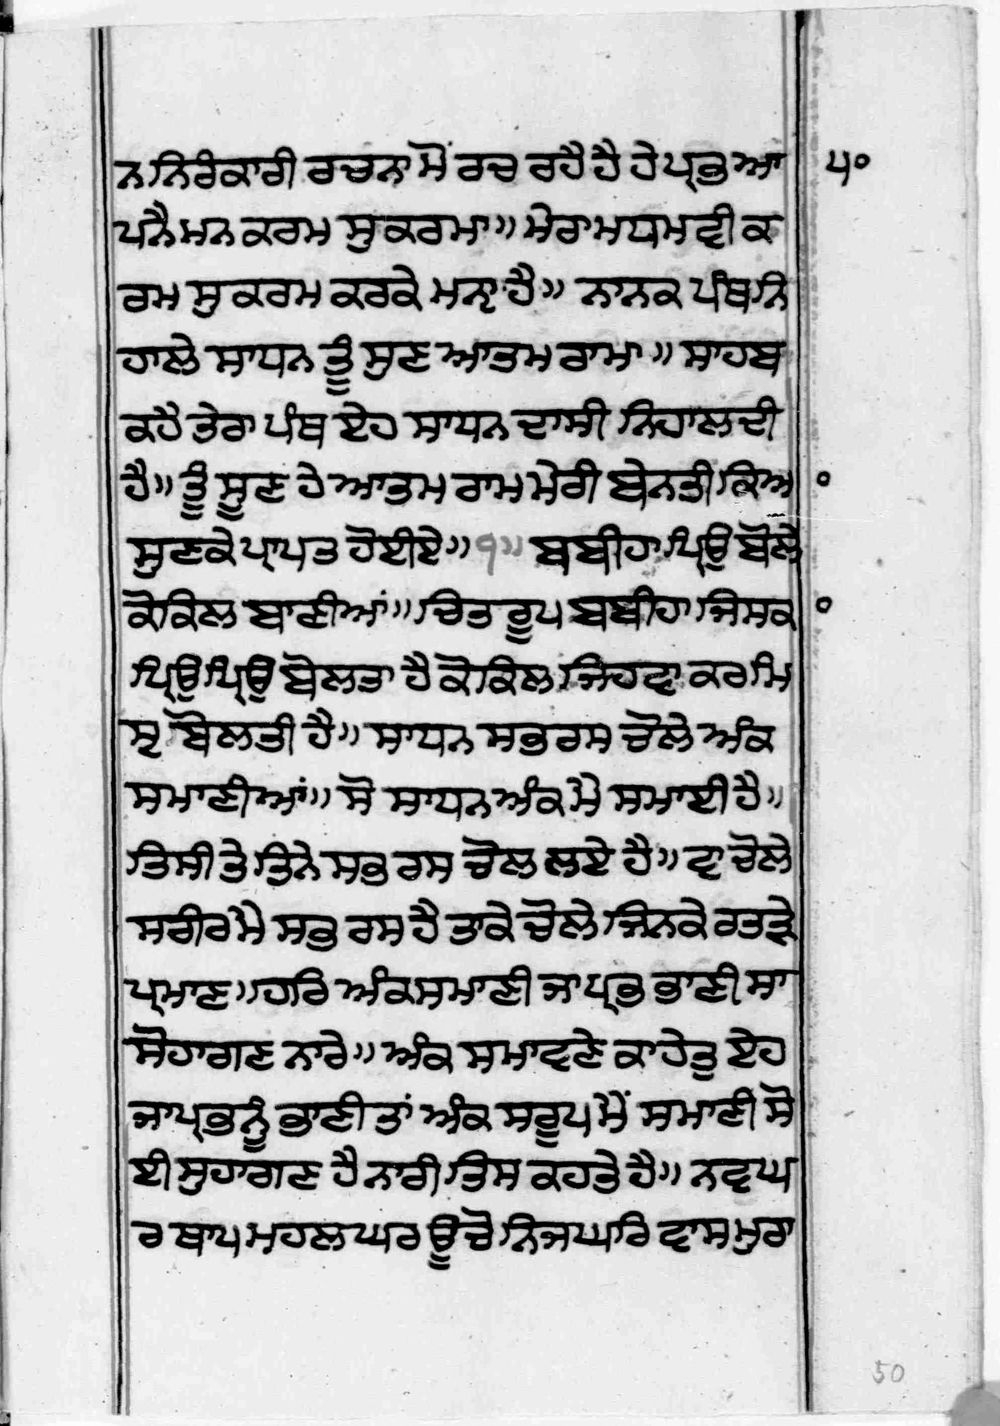 ਨ ਨਿਰੰਕਾਰੀ ਰਚਨਾ ਮੋਂ ਰਚ ਰਹੈ ਹੈ ਹੇ ਪ੍ਰਭ ਆ ੫੦
ਪਨੈ ਮਨ ਕਰਮ ਸੁਕਰਮਾ॥ ਮੇਰਾ ਮਧਮ ਵੀ ਕ
ਰਮ ਸੁਕਰਮ ਕਰਕੇ ਮਨੑ ਹੈ॥ ਨਾਨਕ ਪੰਥ ਨਿ
ਹਾਲੇ ਸਾਧਨ ਤੂੰ ਸੁਣ ਆਤਮ ਰਾਮਾ॥ ਸਾਹਬ
ਕਹੈ ਤੇਰਾ ਪੰਥ ਏਹ ਸਾਧਨ ਦਾਸੀ ਨਿਹਾਲਦੀ
ਹੈ॥ ਤੂੰ ਸੂਣ ਹੇ ਆਤਮ ਰਾਮ ਮੇਰੀ ਬੇਨਤੀ ਕਿਅ ॰
ਸੁਣਕੇ ਪ੍ਰਾਪਤ ਹੋਈਏ॥੧॥ ਬਬੀਹਾ ਪ੍ਰਿਉ ਬੋਲੇ
ਕੋਕਿਲ ਬਾਣੀਆਂ॥ ਚਿਤ ਰੂਪ ਬਬੀਹਾ ਜਿਸਕ ॰
ਪ੍ਰਿਉ ਪ੍ਰਿਉ ਬੋਲਤਾ ਹੈ ਕੋਕਿਲ ਜਿਹਵਾ ਕਰ ਮਿ
ਸ੍ਟ ਬੋਲਤੀ ਹੈ॥ ਸਾਧਨ ਸਭ ਰਸ ਚੋਲੇ ਅੰਕ
ਸਮਾਣੀਆਂ॥ ਸੋ ਸਾਧਨ ਅੰਕ ਮੈ ਸਮਾਈ ਹੈ॥
ਤਿਸੀ ਤੇ ਤਿਨੇ ਸਭ ਰਸ ਚੋਲ ਲਏ ਹੈ॥ ਵਾ ਚੋਲੇ
ਸਰੀਰ ਮੈ ਸਭ ਰਸ ਹੈ ਤਾਕੇ ਚੋਲੇ ਜਿਨਕੇ ਰਤੜੇ
ਪ੍ਰਮਾਣ॥ ਹਰਿ ਅੰਕ ਸਮਾਣੀ ਜਾ ਪ੍ਰਭ ਭਾਣੀ ਸਾ
ਸੋਹਾਗਣ ਨਾਰੇ॥ ਅੰਕ ਸਮਾਵਣੇ ਕਾ ਹੇਤੁ ਏਹ
ਜਾ ਪ੍ਰਭ ਨੂੰ ਭਾਣੀ ਤਾਂ ਅੰਕ ਸਰੂਪ ਮੈਂ ਸਮਾਣੀ ਸੋ
ਈ ਸੁਹਾਗਣ ਹੈ ਨਾਰੀ ਤਿਸ ਕਹਤੇ ਹੈ॥ ਨਵ ਘ
ਰ ਥਾਪ ਮਹਲ ਘਰ ਊਚੋ ਨਿਜ ਘਰਿ ਵਾਸ ਮੁਰਾ
50